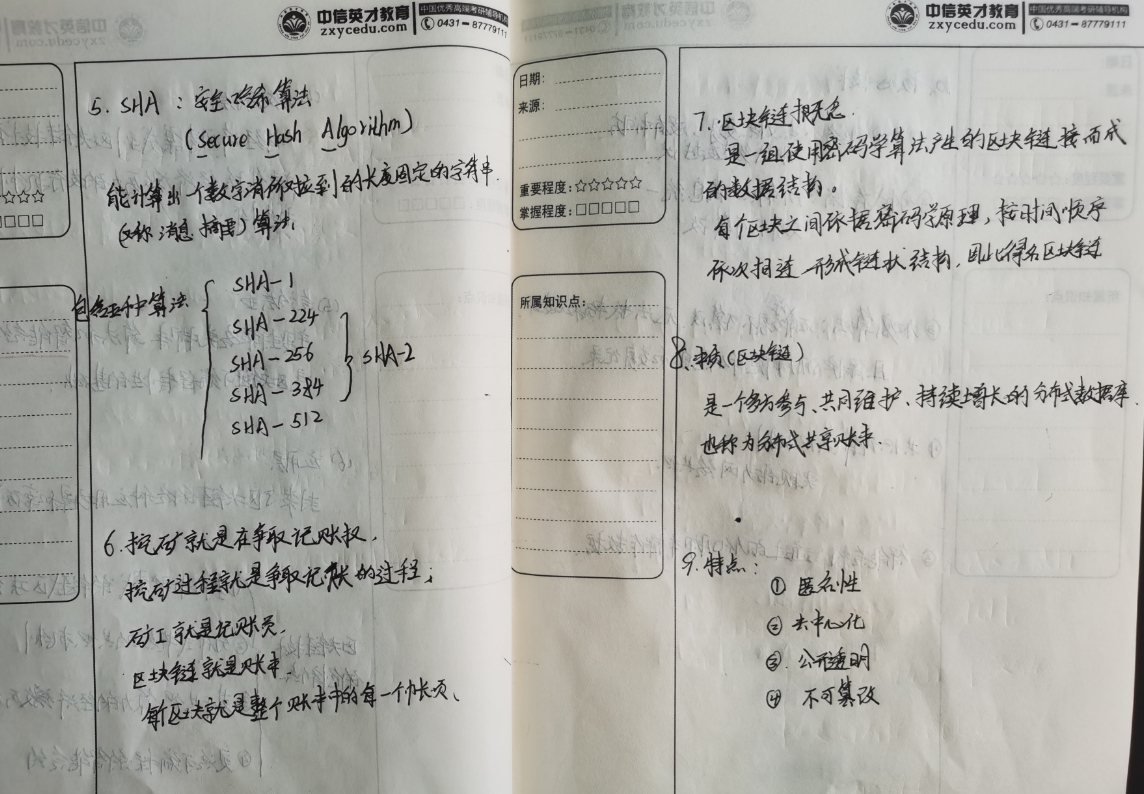 中信英才教育
zxycedu.com
中国优秀高端考研辅导机构
0431-87779111
5. SHA：安全哈希算法
(Secure Hash Algorithm)
能计算出一个数字消息所对应到的长度固定的字符串.
(又称:消息摘要)算法.
包含五种算法
SHA-1
SHA-224
SHA-256
SHA-384
SHA-512
SHA-2
6.挖矿就是在争取记账权.
挖矿过程就是争取记账的过程;
矿工就是记账员.
区块链就是账本.
每个区块就是整个账本中的每一个帐页、
中信英才教育
zxycedu.com
中国优秀高端考研辅导机构
0431-87779111
日期:
来源:
重要程度:☆☆☆☆☆
掌握程度:□□□□□
所属知识点:
7. 区块链概念.
是一组使用密码学算法产生的区块链接而成
的数据结构。
每个区块之间依据密码学原理，按时间顺序
依次相连形成链状结构，因此得名区块链
8.本质(区块链)
是一个多方参与、共同维护、持续增长的分布式数据库.
也称为分布式共享账本.
9.特点:
① 匿名性
② 去中心化
③ 公开透明
④ 不可篡改